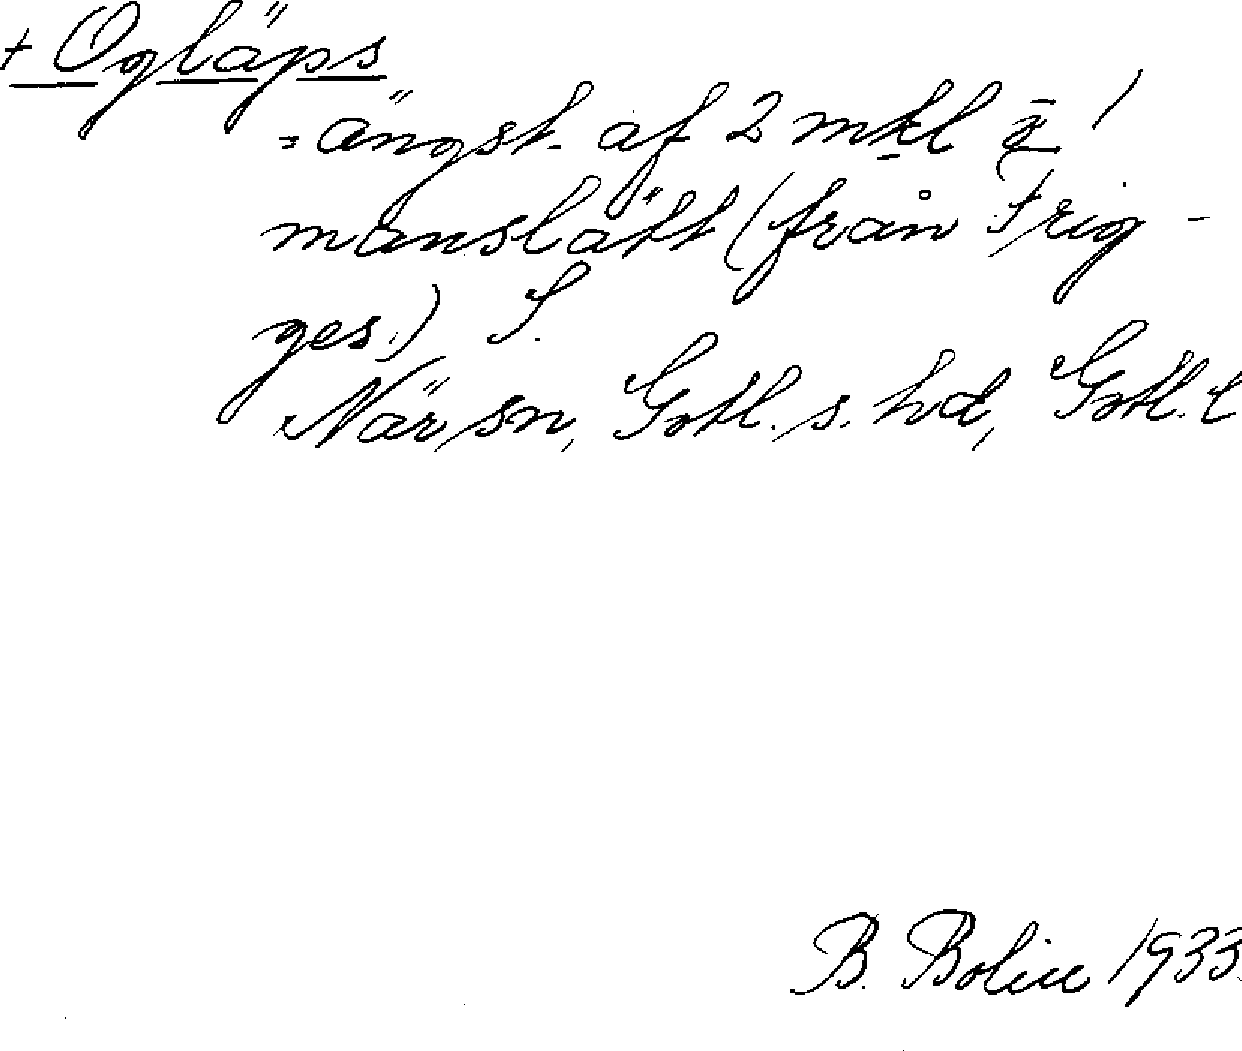 + Ogläps
= ängst. af 2 mkl
manslätt (från Frig-
ges.) S.
När sn, Gotl. s. hd, Gotl. l
B. Bolin 1933